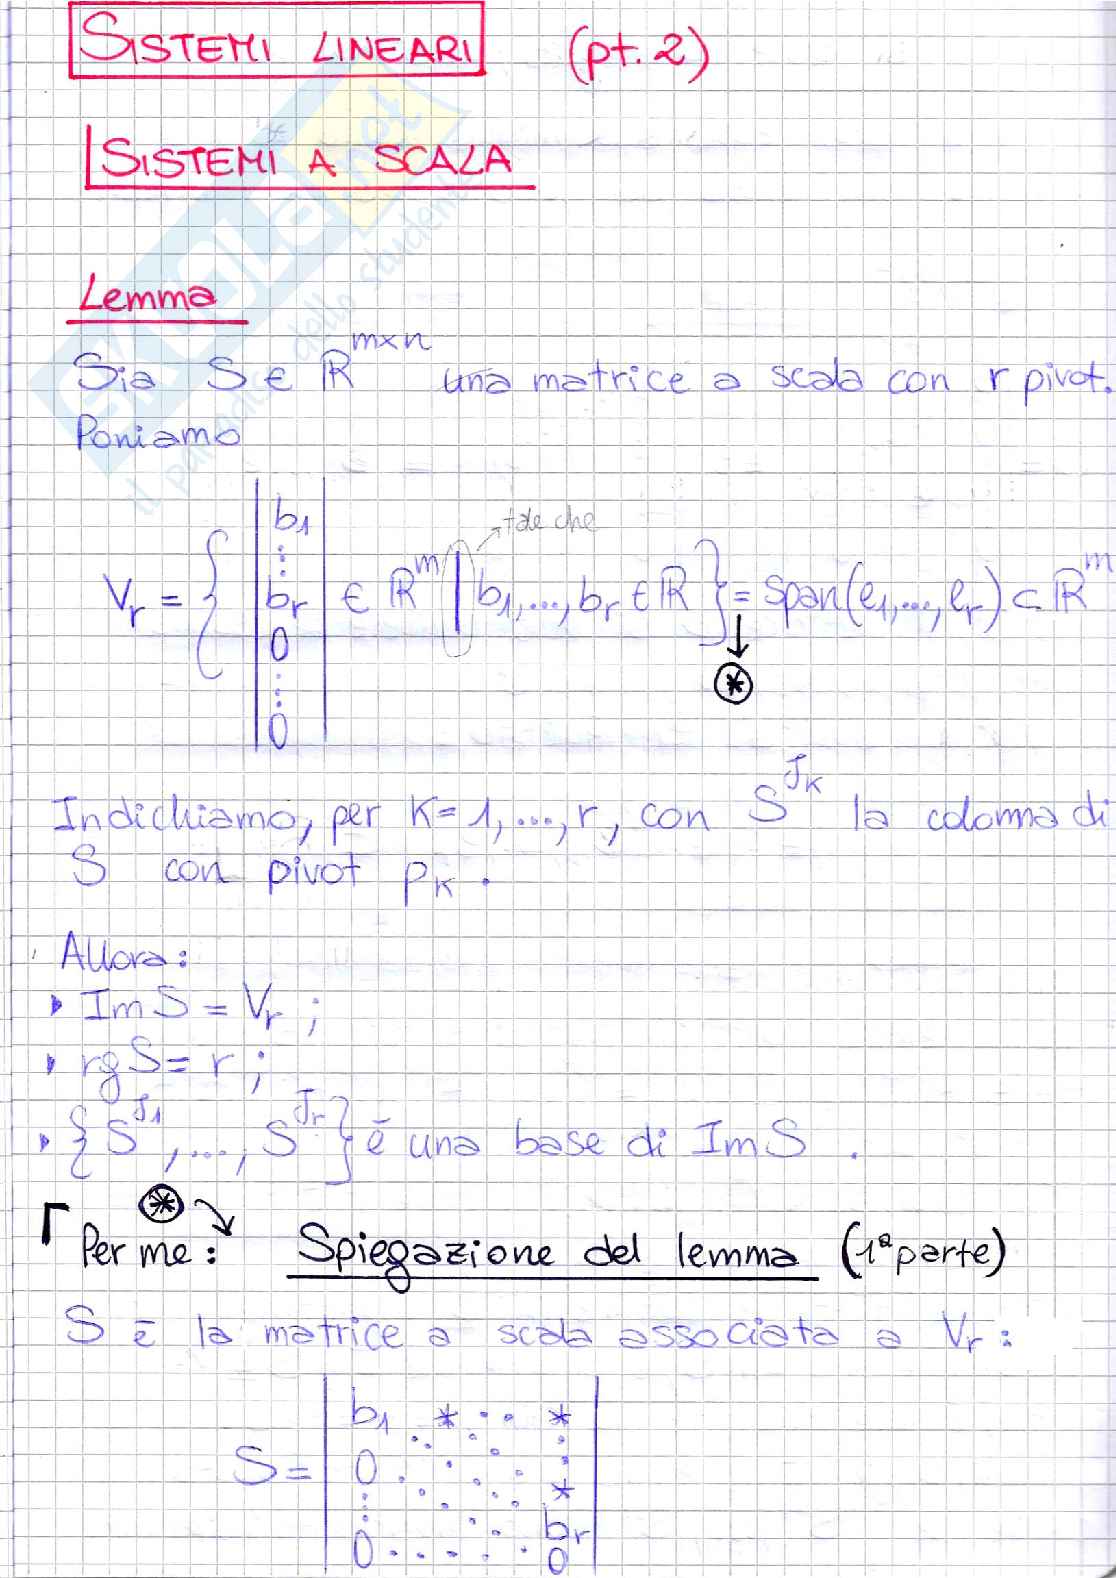 SISTEMI LINEARI (pt. 2)
SISTEMI A SCALA
Lemma
Sia S ∈ ℝ^{m×n} una matrice a scala con r pivot.
Poniamo
tale che
V_r = { | b_1 ⋮ b_r 0 ⋮ 0 | ∈ ℝ^m | b_1, ..., b_r ∈ ℝ } = span(e_1, ..., e_r) ⊂ ℝ^m
⊛
Indichiamo, per K = 1, ..., r, con S^{J_K} la colonna di
S con pivot p_K.
Allora:
▸ Im S = V_r ;
▸ rg S = r ;
▸ { S^{J_1}, ..., S^{J_r} } è una base di Im S .
⊛
Per me: Spiegazione del lemma (1ª parte)
S è la matrice a scala associata a V_r :
S = | b_1 * ·· *
0 · ⋱ ⋮
⋮ ⋱ *
b_r
0 ····· 0 |
skuola.net
il paradiso dello studente